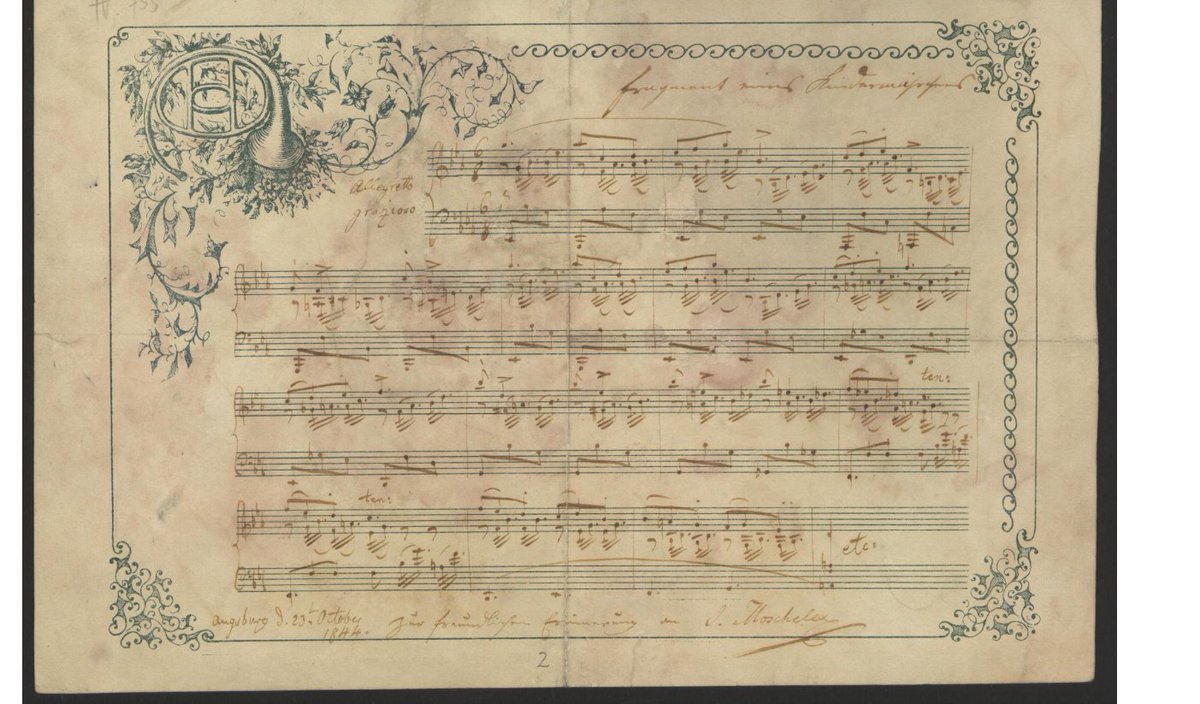 Fragment eines Kindermährchens
Allegretto
grazioso
ten:
ten:
etc:
Augsburg d. 23t October
1844.
zur freundlichen Erinnerung an J. Moscheles
2